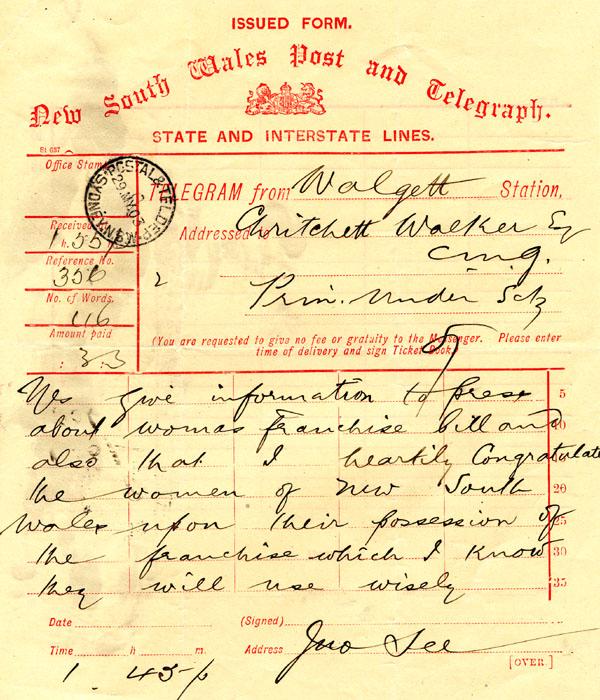 ISSUED FORM.
New South Wales Post and Telegraph.
STATE AND INTERSTATE LINES.
Office Stamp
TELEGRAM from Walgett Station,
Received
1 h. 55
Addressed to Critchett Walker Esq
C.M.G.
Reference No.
356
2 Prin. Under Sec
No. of Words.
46
Amount paid
: 3.3
(You are requested to give no fee or gratuity to the Messenger. Please enter
time of delivery and sign Ticket Book.)
Yes give information to press 5
about womans franchise bill and 10
also that I heartily Congratulate
the women of New South 20
Wales upon their possession of 25
the franchise which I know 30
they will use wisely 35
Date (Signed)
Time h m. Address Jno See
1 . 43 p
[OVER.]